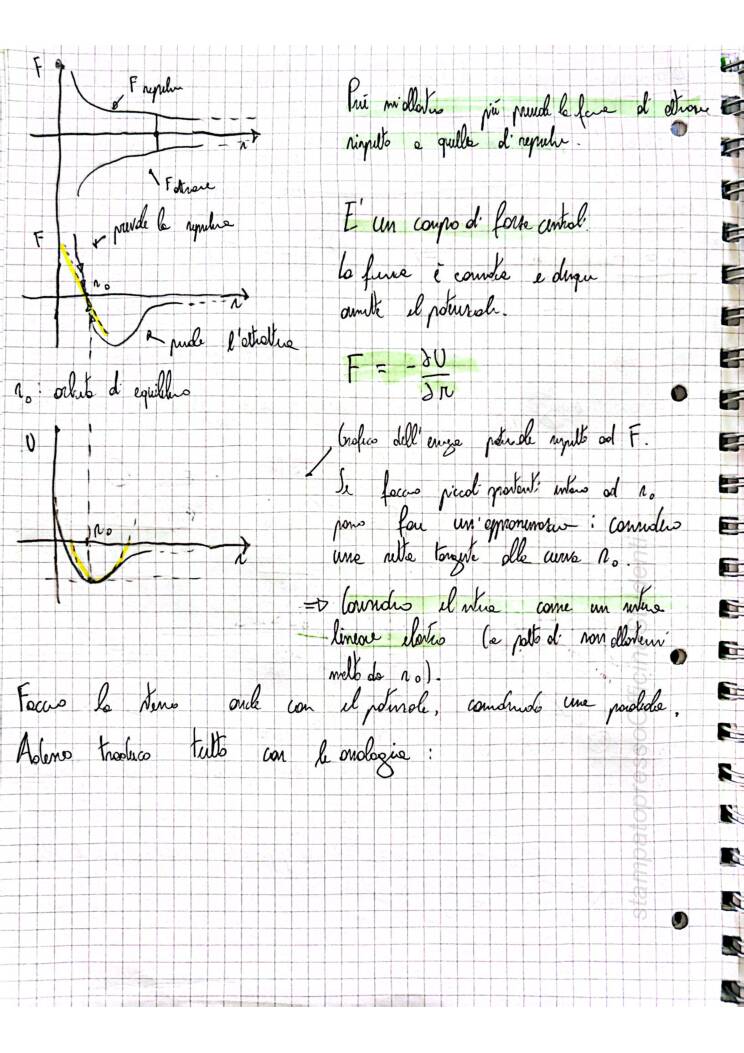 F
F repulsiva
Più mi allontano più prevale la forza di attrazione
rispetto a quella di repulsione.
r
F attrazione
prevale la repulsiva
F
È un campo di forze centrali.
r₀
r
La forza è conservativa e dunque
ammette il potenziale.
prevale l'attrattiva
F = - ∂U/∂r
r₀: orbita di equilibrio
U
Grafico dell'energia potenziale rispetto ad F.
Se faccio piccoli spostamenti intorno ad r₀
posso fare un'approssimazione: considero
una retta tangente alla curva r₀.
r₀
r
=> Considero il sistema come un sistema
lineare elastico (a patto di non allontanarmi
molto da r₀).
Faccio lo stesso anche con il potenziale, considerando una parabola.
Adesso traduco tutto con le analogie:
stampatopresso